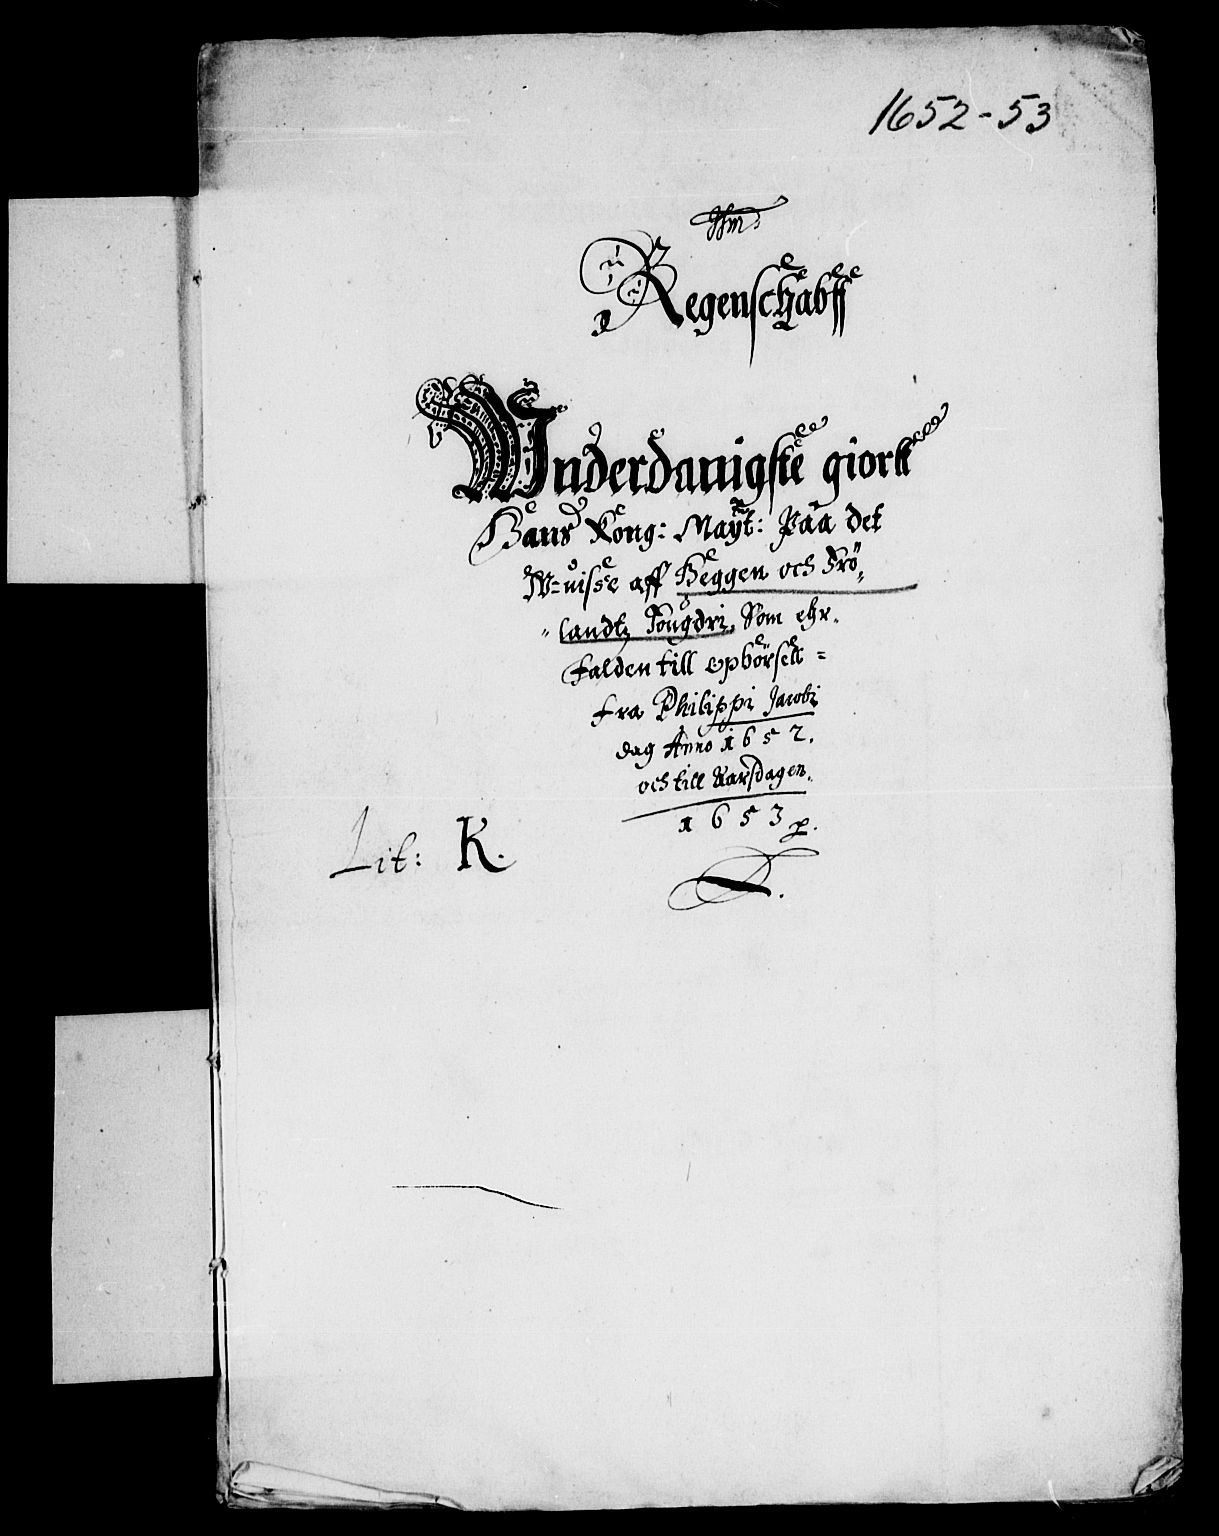 1652-53
Regenschabff
Vnderdanigste giortt
Hans Kong: Mayt: Paa det
W=uisse aff Heggen och Frö„
„landtz Fougdri, Som ehr
falden till opbörsell =
fra Philippi Jacobi
dag Anno 1652.
och till Aarsdagen
1653
Lit: K.